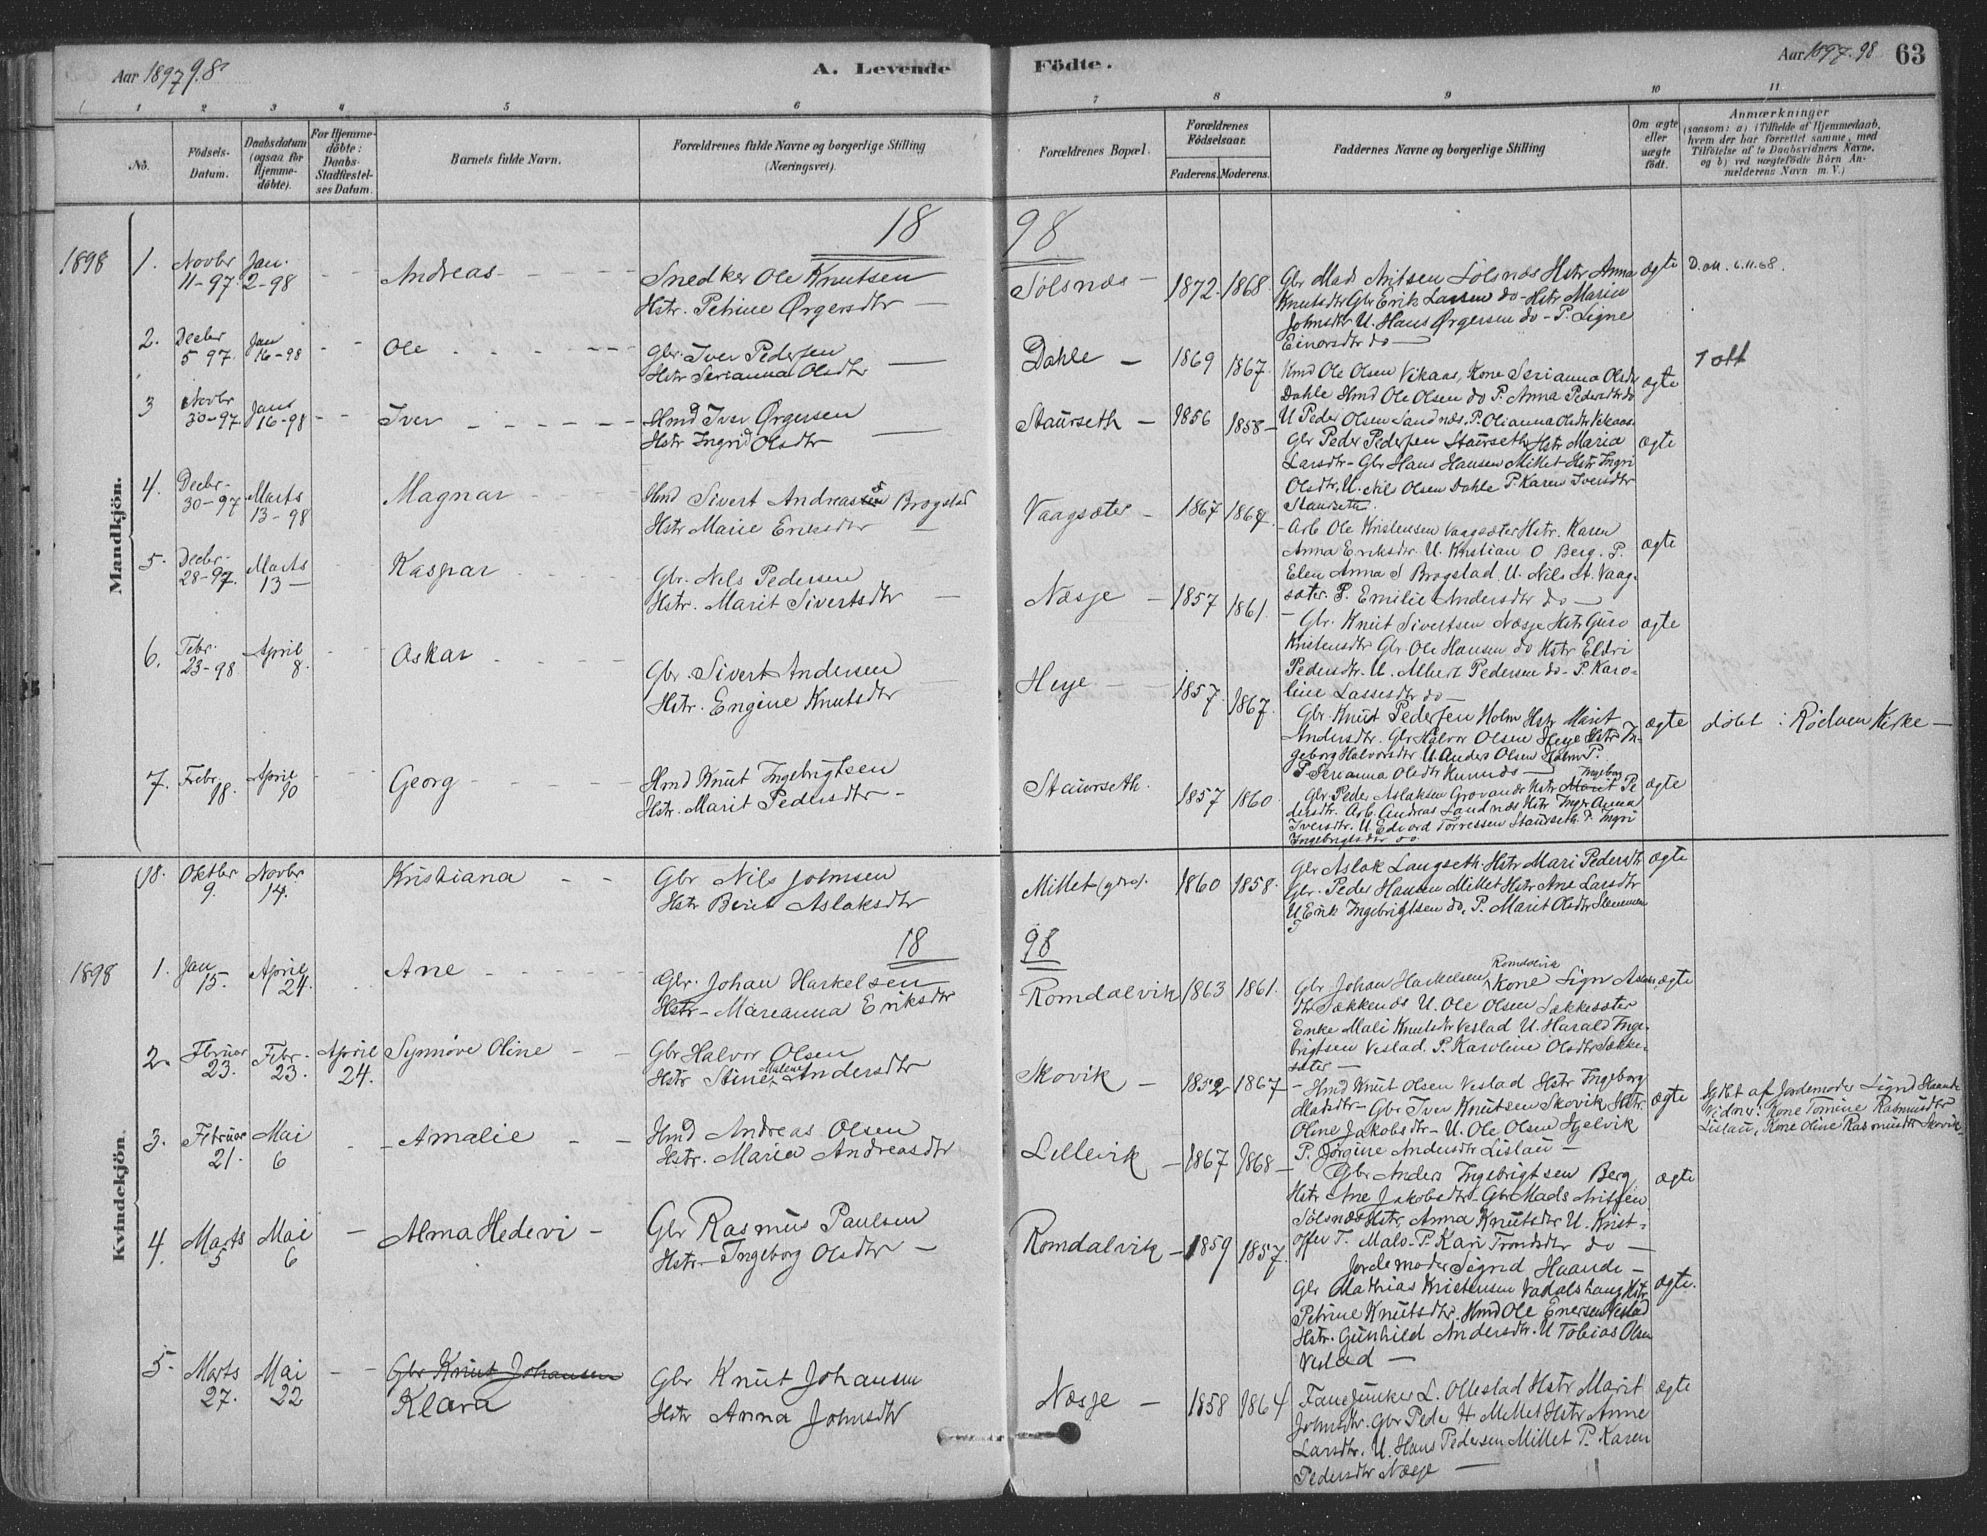 Aar 1897 98
A. Levende
Födte.
Aar 1897-98
63
1 2 3 4 5 6 7 8 9 10 11
No.
Födsels-Datum.
Daabsdatum (ogsaa for Hjemmedöbte).
For Hjemmedöbte: Daabs-Stadfæstelses Datum.
Barnets fulde Navn.
Forældrenes fulde Navne og borgerlige Stilling (Næringsvei).
Forældrenes Bopæl.
Forældrenes Födselsaar.
Faderens. Moderens.
Faddernes Navne og borgerlige Stilling
Om ægte eller uægte födt.
Anmærkninger
(saasom: a) i Tilfælde af Hjemmedaab, hvem der har forrettet samme, med Tilföielse af to Daabsvidners Navne, og b) ved uægtefödte Börn Anmelderens Navn m. V.)
Mandkjön.
18 98
1898 1. Novbr 11-97 Jan. 2-98 Andreas Snedker Ole Knutsen
Hstr. Petrine Ørgersdtr
Sølsnæs 1872 1868
Gbr Mads Aritsen Sølsnæs Hstr Anna
Knutsdtr Gbr Erik Larsen do Hstr Marie
Johnsdtr U. Hans Ørgersen do P. Signe
Einarsdtr do
ægte
D. att. 6.11.68.
2. Decbr 5-97 Jan 16-98 Ole Gbr. Iver Pedersen
Hstr Serianna Olsdtr
Dahle 1869 1867
Hmd Ole Olsen Vikaas, Kone Serianna Olsdtr
Dahle Hmd Ole Olsen do P. Anna Pedersdtr do
U Peder Olsen Sandnæs, P. Olianna Olsdtr Vikaas
ægte
1 att
3 Novbr 30-97 Jan 16-98 Iver Hmd Iver Ørgersen
Hstr Ingrid Olsdtr
Staurseth 1856 1858
Gbr Peder Pedersen Staurseth Hstr Maria
Larsdtr - Gbr Hans Hansen Millet Hstr Ingri
Olsdtr, U. Nils Olsen Dahle P. Karen Iversdtr
Staurseth
ægte
4. Decbr 30-97 Marts 13-98 Magnar Hmd Sivert Andreassen Brogstad
Hstr Marie Eriksdtr
Vaagsæter 1867 1867
Arb Ole Kristensen Vaagsæter Hstr. Karen
Anna Eriksdtr. U. Kristian O Berg. P.
Elen Anna S Brogstad U. Nils St. Vaag-
sæter. P. Emilie Andersdtr do
ægte
5. Decbr 28-97 Marts 13 Kaspar Gbr. Nils Pedersen
Hstr. Marit Sivertsdtr
Næsje 1857 1861
Gbr. Knut Sivertsen Næsje Hstr Guro
Kristensdtr Gbr Ole Hansen do Hstr Eldri
Pedersdtr. U. Albert Pedersen do - P. Karo-
line Lassesdtr do
ægte
6. Febr. 23-98 April 8. Oskar Gbr. Sivert Andersen
Hstr. Engine Knutsdtr
Heje 1857 1867
Gbr. Knut Pedersen Holm Hstr Marit
Andersdtr. Gbr Halvor Olsen Heje Hstr In-
geborg Halvorsdtr U. Anders Olsen Holm P.
P Serianna Olsdtr
ægte
døbt i Rødven Kirke
7. Febr 18. April 10 Georg Hmd Knut Ingebrigtsen
Hstr. Marit Pedersdtr
Staurseth. 1857 1860
Gbr. Peder Aslaksen Grovande Hstr Marit Ingeborg Pe
dersdtr. Arb. Andreas Sandnæs Hstr Inger Anna
Iversdtr. U. Edvard Torressen Staurseth P. Ingri
Ingebrigtsdtr do
ægte
Kvindekjön.
18. Oktbr 9. Novbr 14. Kristiana Gbr Nils Johnsen
Hstr Berit Aslaksdtr
Millet 1860 1858
Gbr Aslak Langseth Hstr Mari Pedersdtr
Gbr. Peder Hansen Millet Hstr Ane Larsdtr
U Erik Ingebrigtsen do, P. Marit Olsdtr
ægte
18 98
1898 1. Jan 15. April 24. Ane Gbr. Johan Harkelsen
Hstr - Marianna Eriksdtr
Romdalvik 1863 1861
Gbr Johan Harkelsen Romdalvik Kone Sign
dtr Sækkenæs U. Ole Olsen Sækkesæter
Enke Mali Knutsdtr Veslad U. Harald Inge-
brigtsen Veslad. P. Karoline Olsdtr Sække-
sæter
ægte
2. Februar 23. Febr. 23. April 24. Synnøve Oline Gbr Halvor Olsen
Hstr Stine Malene Andersdtr
Skovik 1852 1867
Hmd Knut Olsen Veslad Hstr Ingeborg
Madsdtr - Gbr Iver Knutsen Skovik Hstr.
Oline Jakobsdtr - U. Ole Olsen Hjelvik
P. Jørgine Andersdtr Lislau
ægte
døbt af Jordemoder Sigrid Haande
Vidner: Kone Tomine Rasmusdtr
Lislau, Kone Oline Rasmusdtr Skovik
3. Februar 21. Mai 6 Amalie Hmd Andreas Olsen
Hstr. Maria Andreasdtr
Lillevik 1867 1868
Gbr Anders Ingebrigtsen Berg
Hstr Ane Jakobsdtr - Gbr Mads Aritsen
Sølsnæs Hstr, Anna Knutsdtr U. Krist-
offer T. Malo - P. Kari Trondsdtr do
Jordemoder Sigrid Haande
ægte
4. Marts 5 Mai 6 Alma Hedevi Gbr Rasmus Paulsen
Hstr - Ingeborg Olsdtr
Romdalvik 1859 1857
Gbr Mathias Kristensen Vadalshaug Hstr.
Petrine Knutsdtr. Hmd Ole Enersen Veslad
Hstr. Gunhild Andersdtr. U Tobias Olsen
Veslad
ægte.
5. Marts 27. Mai 22 Gbr Knut Johansen
Klara
Gbr Knut Johansen
Hstr Anna Johnsdtr
Næsje 1858 1864
Fanejunker L. Ollestad Hstr Marit
Johnsdtr. Gbr Peder H Millet Hstr Anne
Larsdtr. U. Hans Pedersen Millet P. Karen
Pedersdtr Næsje
ægte